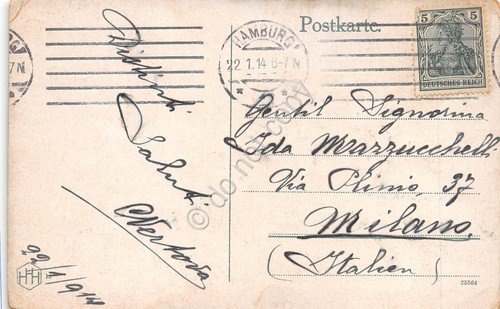 Postkarte.
HAMBURG
22.1.14 6-7N
5 5
DEUTSCHES REICH
7N
Distinti
Saluti
22/1/914
Gentil Signorina
Ida Mazzucchelli
Via Plinio, 37
Milano
(Italien)
HH
25564
do not copy